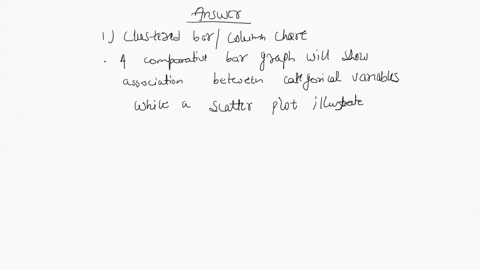 Answer
1) Clustered bar/column chart
- A comparative bar graph will show
association between categorical variables
while a scatter plot illustrate